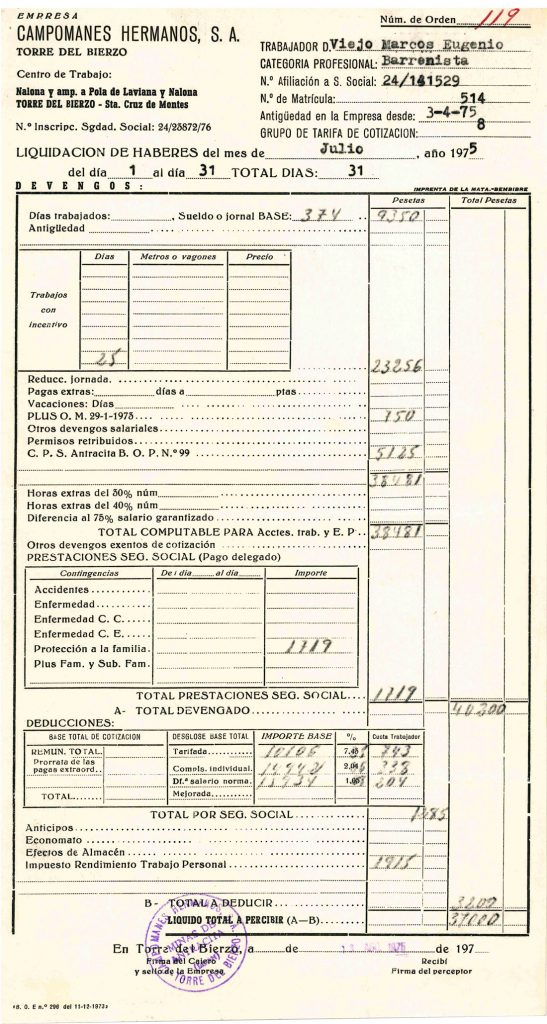 EMPRESA
CAMPOMANES HERMANOS, S. A.
TORRE DEL BIERZO
Centro de Trabajo:
Nalona y amp. a Pola de Laviana y Nalona
TORRE DEL BIERZO - Sta. Cruz de Montes
N.º Inscripc. Sgdad. Social: 24/25872/76
Núm. de Orden 119
TRABAJADOR D. Viejo Marcos Eugenio
CATEGORIA PROFESIONAL: Barrenista
N.º Afiliación a S. Social: 24/141529
N.º de Matrícula: 514
Antigüedad en la Empresa desde: 3-4-75
GRUPO DE TARIFA DE COTIZACION: 8
LIQUIDACION DE HABERES del mes de Julio, año 1975
del día 1 al día 31 TOTAL DIAS: 31
DEVENGOS:
IMPRENTA DE LA MATA.-BEMBIBRE
Pesetas Total Pesetas
Días trabajados: , Sueldo o jornal BASE: 374 9350
Antigüedad
Días Metros o vagones Precio
Trabajos
con
incentivo
25
23256
Reducc. jornada.
Pagas extras: días a ptas.
Vacaciones: Días
PLUS O. M. 29-1-1973 150
Otros devengos salariales
Permisos retribuidos
C. P. S. Antracita B. O. P. N.º 99 5125
38481
Horas extras del 50% núm
Horas extras del 40% núm
Diferencia al 75% salario garantizado
TOTAL COMPUTABLE PARA Acctes. trab. y E. P 38481
Otros devengos exentos de cotización
PRESTACIONES SEG. SOCIAL (Pago delegado)
Contingencias De l día al día Importe
Accidentes
Enfermedad
Enfermedad C. C.
Enfermedad C. E.
Protección a la familia. 1719
Plus Fam. y Sub. Fam.
TOTAL PRESTACIONES SEG. SOCIAL 1719
A- TOTAL DEVENGADO 40200
DEDUCCIONES:
BASE TOTAL DE COTIZACION DESGLOSE BASE TOTAL IMPORTE BASE % Cuota Trabajador
REMUN. TOTAL. Tarifada
Prorrata de las
pagas extraord. Compls. individual.
Df.ª salario norma.
TOTAL Mejorada
TOTAL POR SEG. SOCIAL 1285
Anticipos
Economato
Efectos de Almacén
Impuesto Rendimiento Trabajo Personal 1915
B- TOTAL A DEDUCIR 3200
LIQUIDO TOTAL A PERCIBIR (A—B) 37000
En Torre del Bierzo, a de de 197
Firma del Cajero
y sello de la Empresa
Recibí
Firma del perceptor
CAMPOMANES HERMANOS, S. A.
MINAS DE
ANTRACITA
TORRE DEL BIERZO
«B. O. E n.º 296 del 11-12-1973»